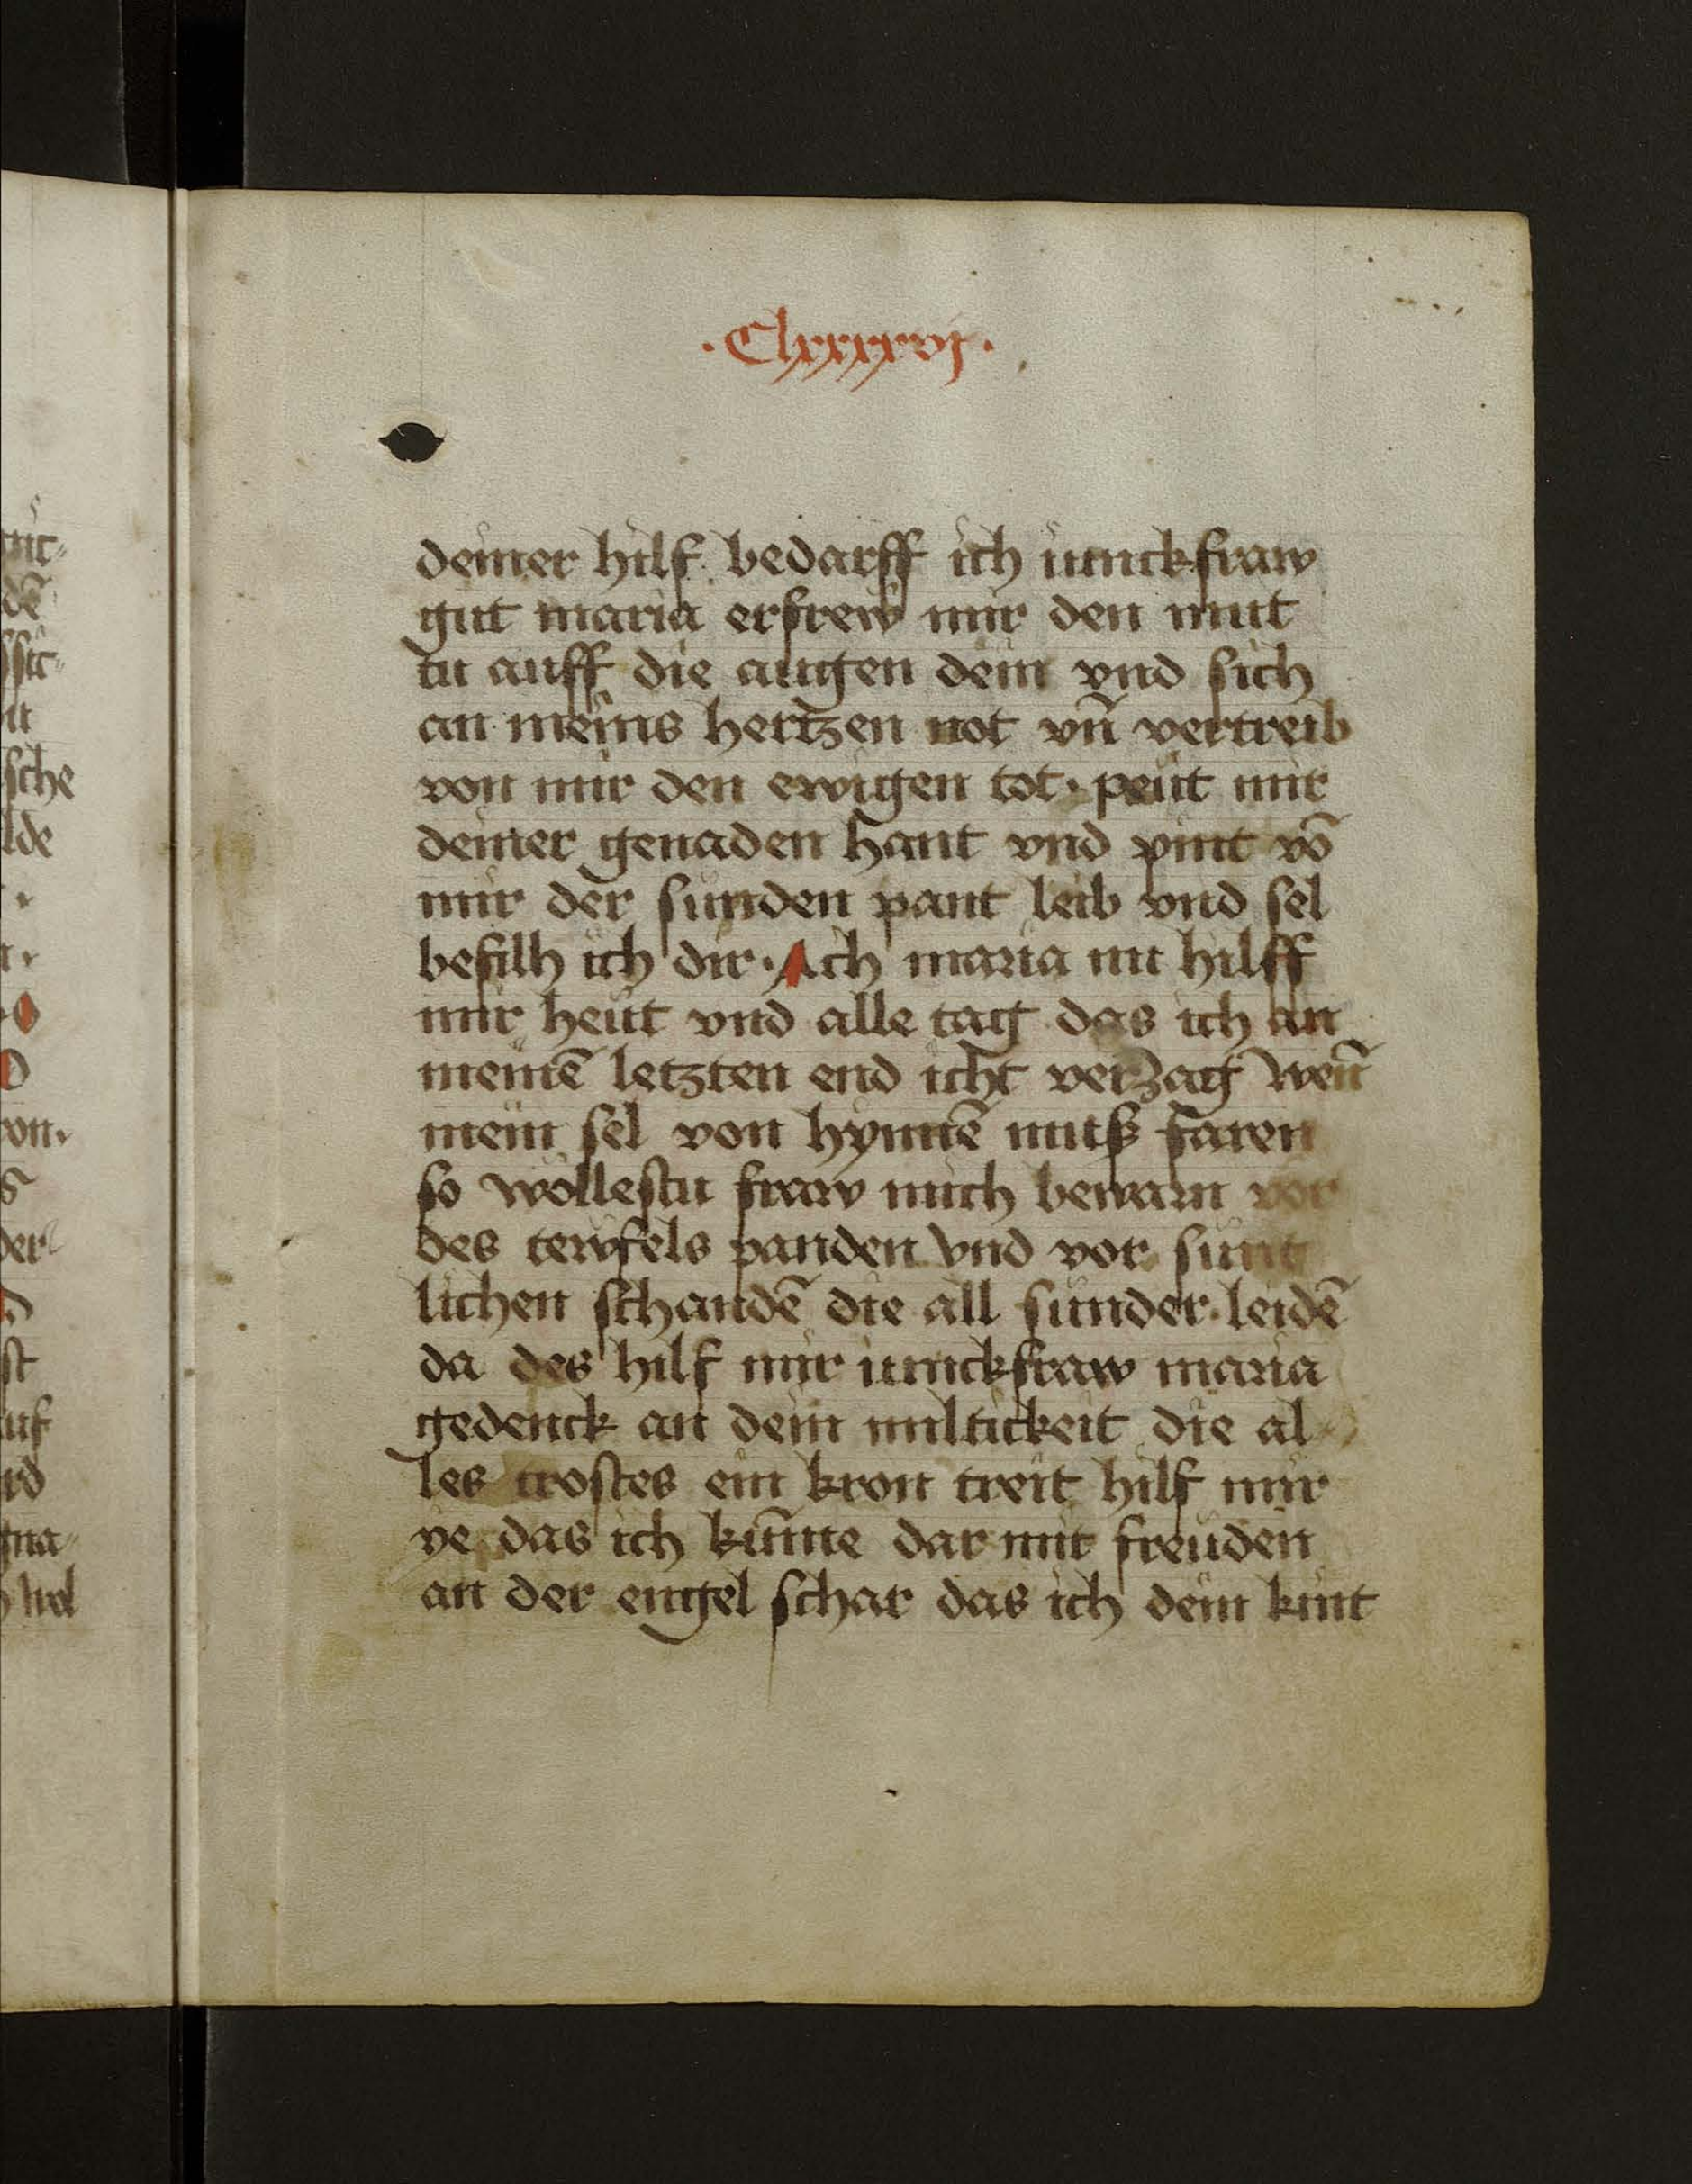 .Clxxxxvj.
deiner hilf bedarff ich iunckfraw
gut maria erfrew mir den mut
tu auff die augen dein vnd sich
an meins hertzen not vn̄ vertreib
von mir den ewigen tot· peut mir
deiner genaden hant vnd pint vō
mir der sunden pant leib vnd sel
befilh ich dir· Ach maria nu hilff
mir heut vnd alle tag das ich an
meinē letzten end icht verzag wen̄
mein sel von hynnē muß faren
so wollestu fraw mich bewarn vor
des tewfels panden vnd vor sunt
lichen schandē die all sunder leidē
da des hilf mir iunckfraw maria
gedenck an dein miltickeit die al
les trostes ein kron treit hilf mir
ye das ich kumme dar mit freuden
an der engel schar das ich dein kint